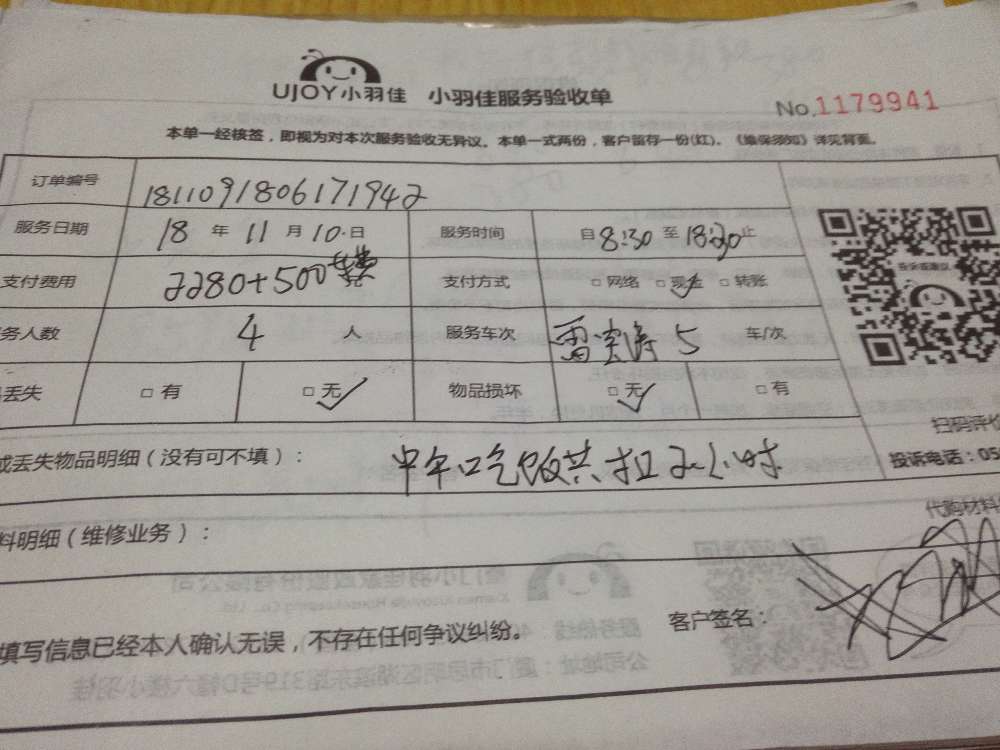 UJOY小羽佳 小羽佳服务验收单 No.1179941
本单一经核签，即视为对本次服务验收无异议。本单一式两份，客户留存一份(红)。《维保须知》详见背面。
订单编号 1811091806171942
服务日期 18 年 11 月 10 日 服务时间 自 8:30 至 18:30 止
支付费用 2280+500车费 支付方式 □ 网络 □ 现金 □ 转账
务人数 4 人 服务车次 5 车/次
丢失 □ 有 □ 无 物品损坏 □ 无 □ 有
或丢失物品明细（没有可不填）： 中午吃饭共扣2小时
扫码评价
投诉电话：05
料明细（维修业务）： 代购材料
填写信息已经本人确认无误，不存在任何争议纠纷。 客户签名：